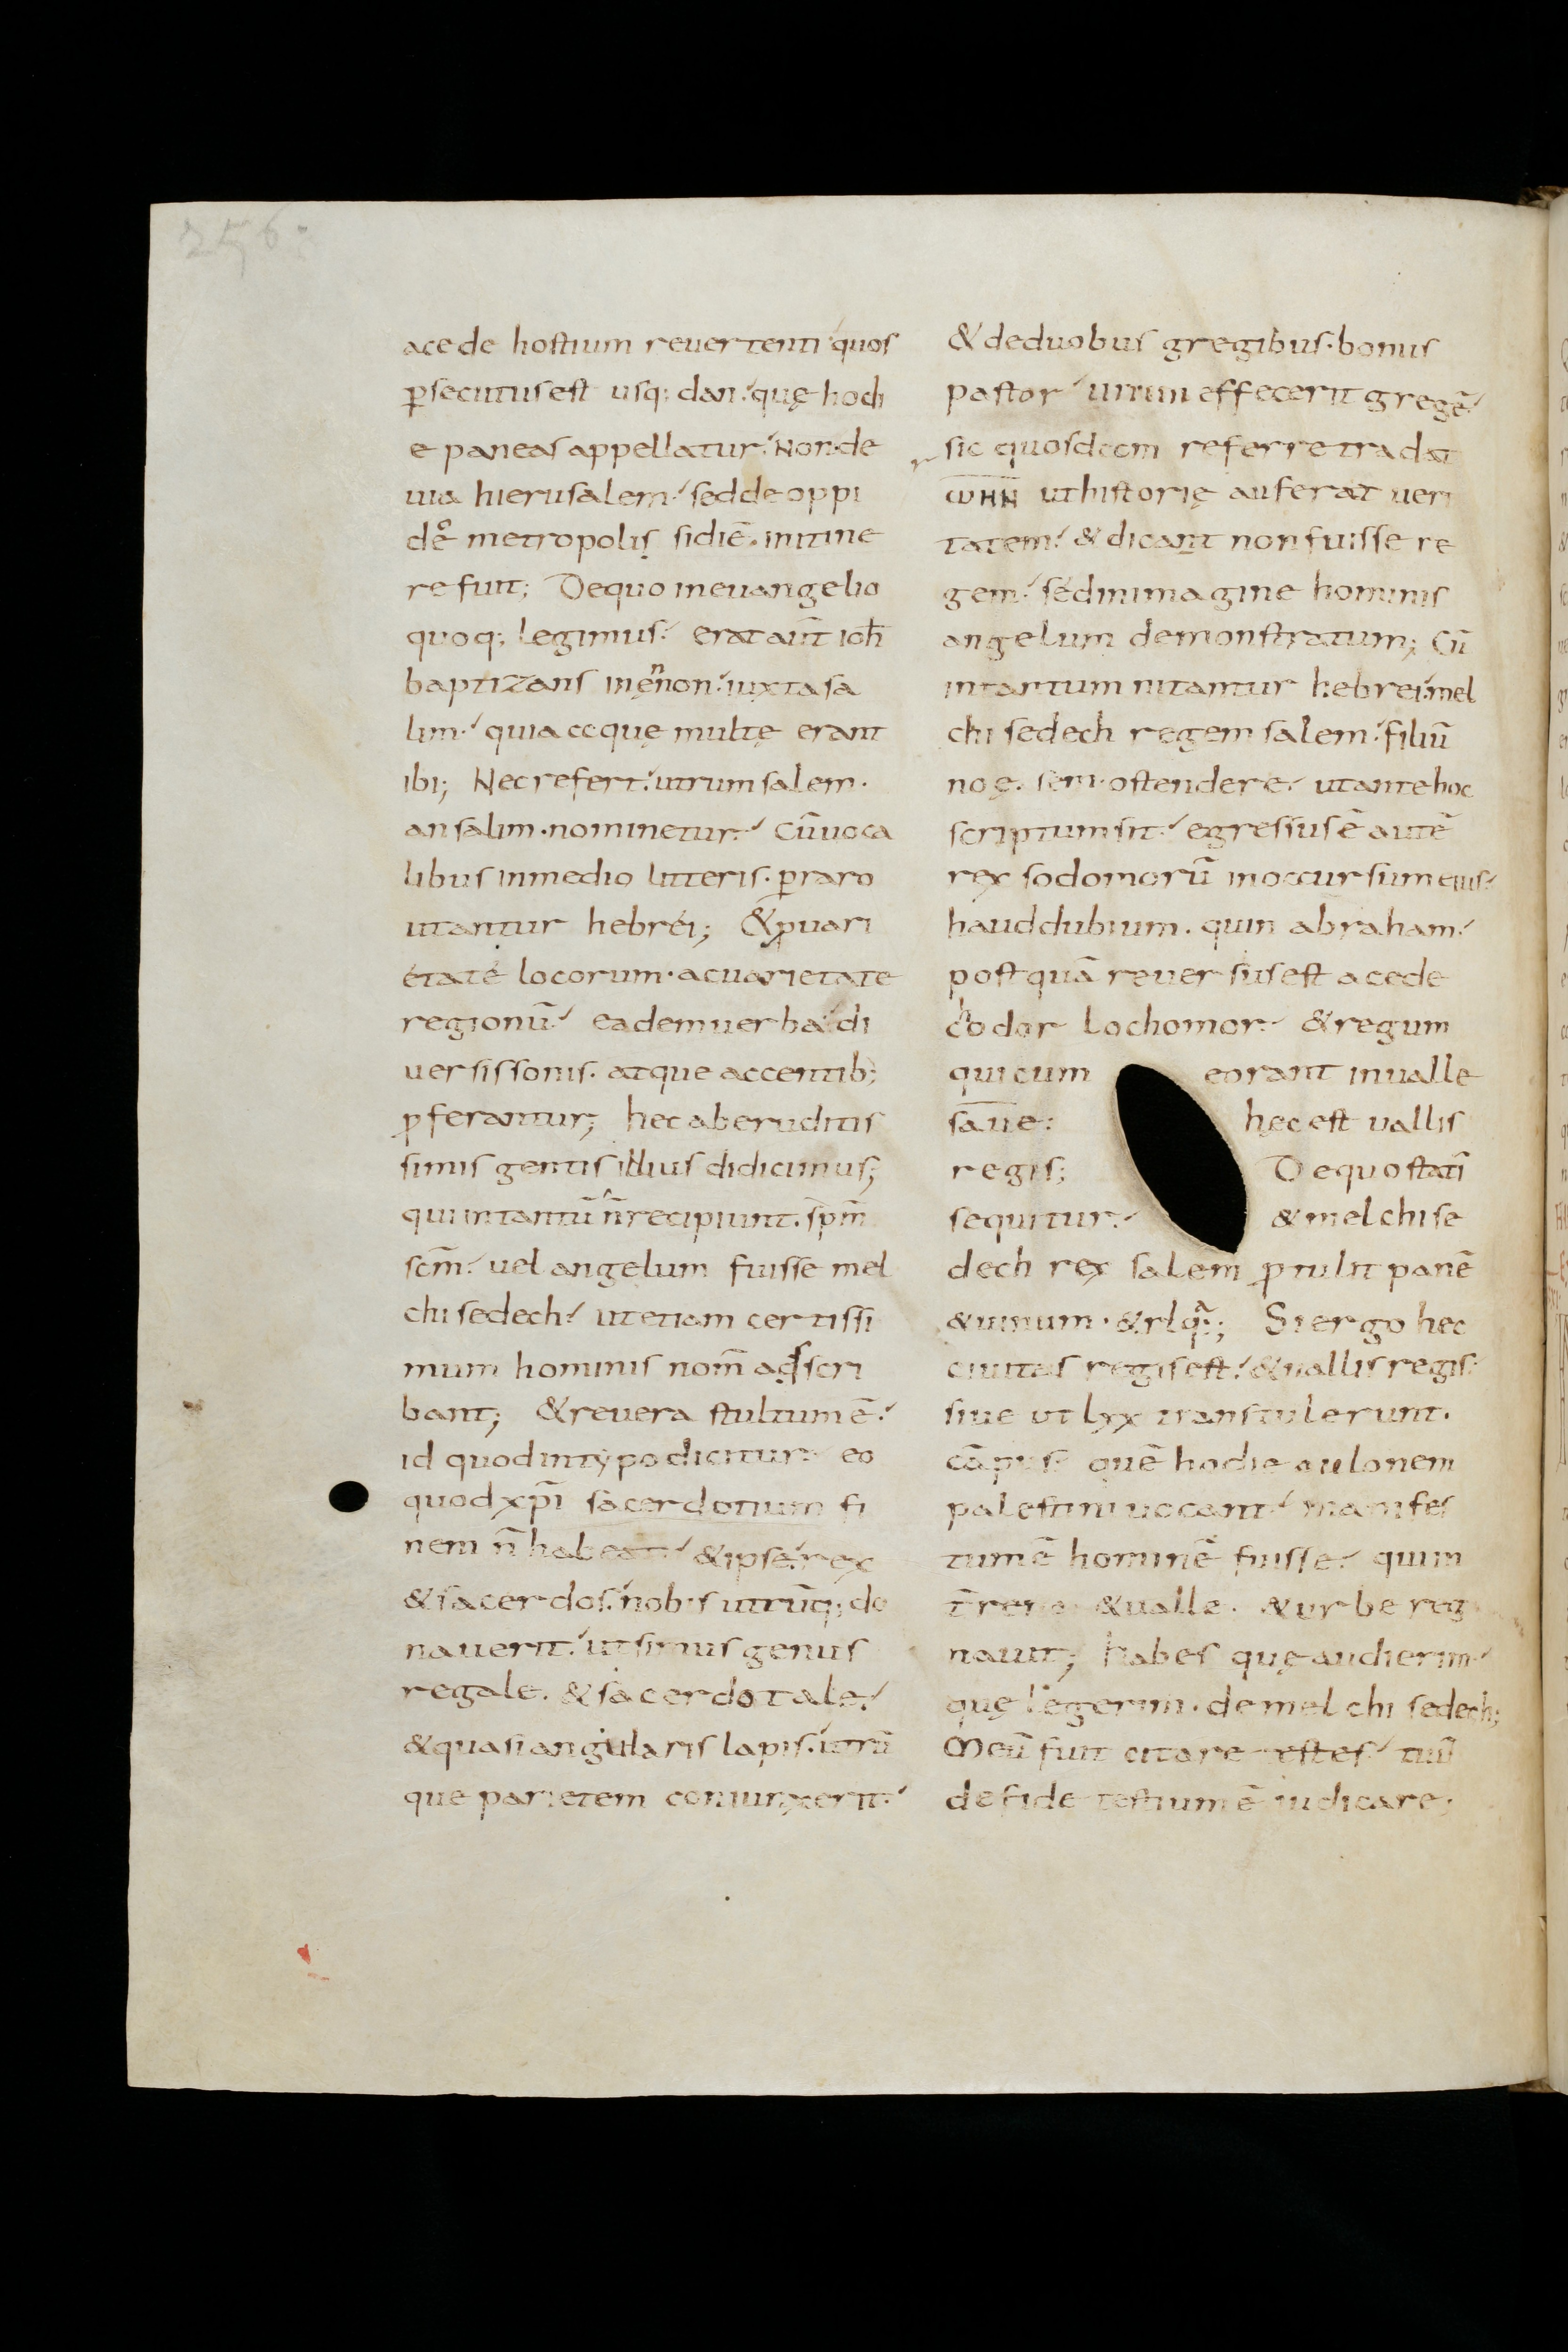 256
acede hostium reuertenti quos
p̱secutus est usq; dan. quę hodi
e paneas appellatur. Non de
uia hierusalem. sed de oppi
do metropolis sidiē. in itine
re fuit; De quo in euangelio
quoq; legimus. erat aūt ioh̄
baptizans in ęnnon. iuxta sa
lim. quia acquę multę erant
ibi; Nec refert. utrum salem.
an salim. nominetur. Cū uoca
libus in medio litteris. p̱raro
utantur hebrei; & p̱ uari
etate locorum. ac uarietate
regionū. eadem uerba di
uersis sonis. atque accentib;
ꝓferantur; hec ab eruditis
simis gentis illius didicimus;
qui in tantū n̄ recipiunt. sp̄m
sc̄m. uel angelum fuisse mel
chisedech. ut etiam certissi
mum hominis nom̄ adscri
bant; & reuera stultum ē.
id quod in typo dicitur. eo
quod xp̄i sacerdotium fi
nem n̄ habeat. & ipse. rex
& sacerdos. nobis utrūq; do
nauerit. ut simus genus
regale. & sacerdotale.
& quasi angularis lapis. utrū
que parietem coniunxerit.
& de duobus gregibus. bonus
pastor unum effecerit gregē.
sic quosdam referre tradat
ωΗΝ ut historię auferat ueri
tatem. & dicant non fuisse re
gem. sed in imagine hominis
angelum demonstratum; Cū
in tantum nitantur hebrei. mel
chisedech regem salem. filiū
noę. sem. ostendere. ut ante hoc
scriptum sit. egressus ē autē
rex sodomorū in occursum eius.
haud dubium. quin abraham.
postquā reuersus est a cede
chodor lochomor. & regum
qui cum eo rant in ualle
saue. hęc est uallis
regis; De quo statī
sequitur. & melchise
dech rex salem ꝓtulit panē
& uinum. & rlqᵃ; Si ergo hec
ciuitas regis est. & uallis regis.
siue ut lxx transtulerunt.
cāpus quē hodie aulonem
palestini uocant. manifes
tum ē hominē fuisse. qui in
t̄rena & ualle. & urbe reg
nauit; habes quę audierim.
quę legerim. de melchisedech;
Meū fuit citare testes. tuū
de fide testium ē iudicare;